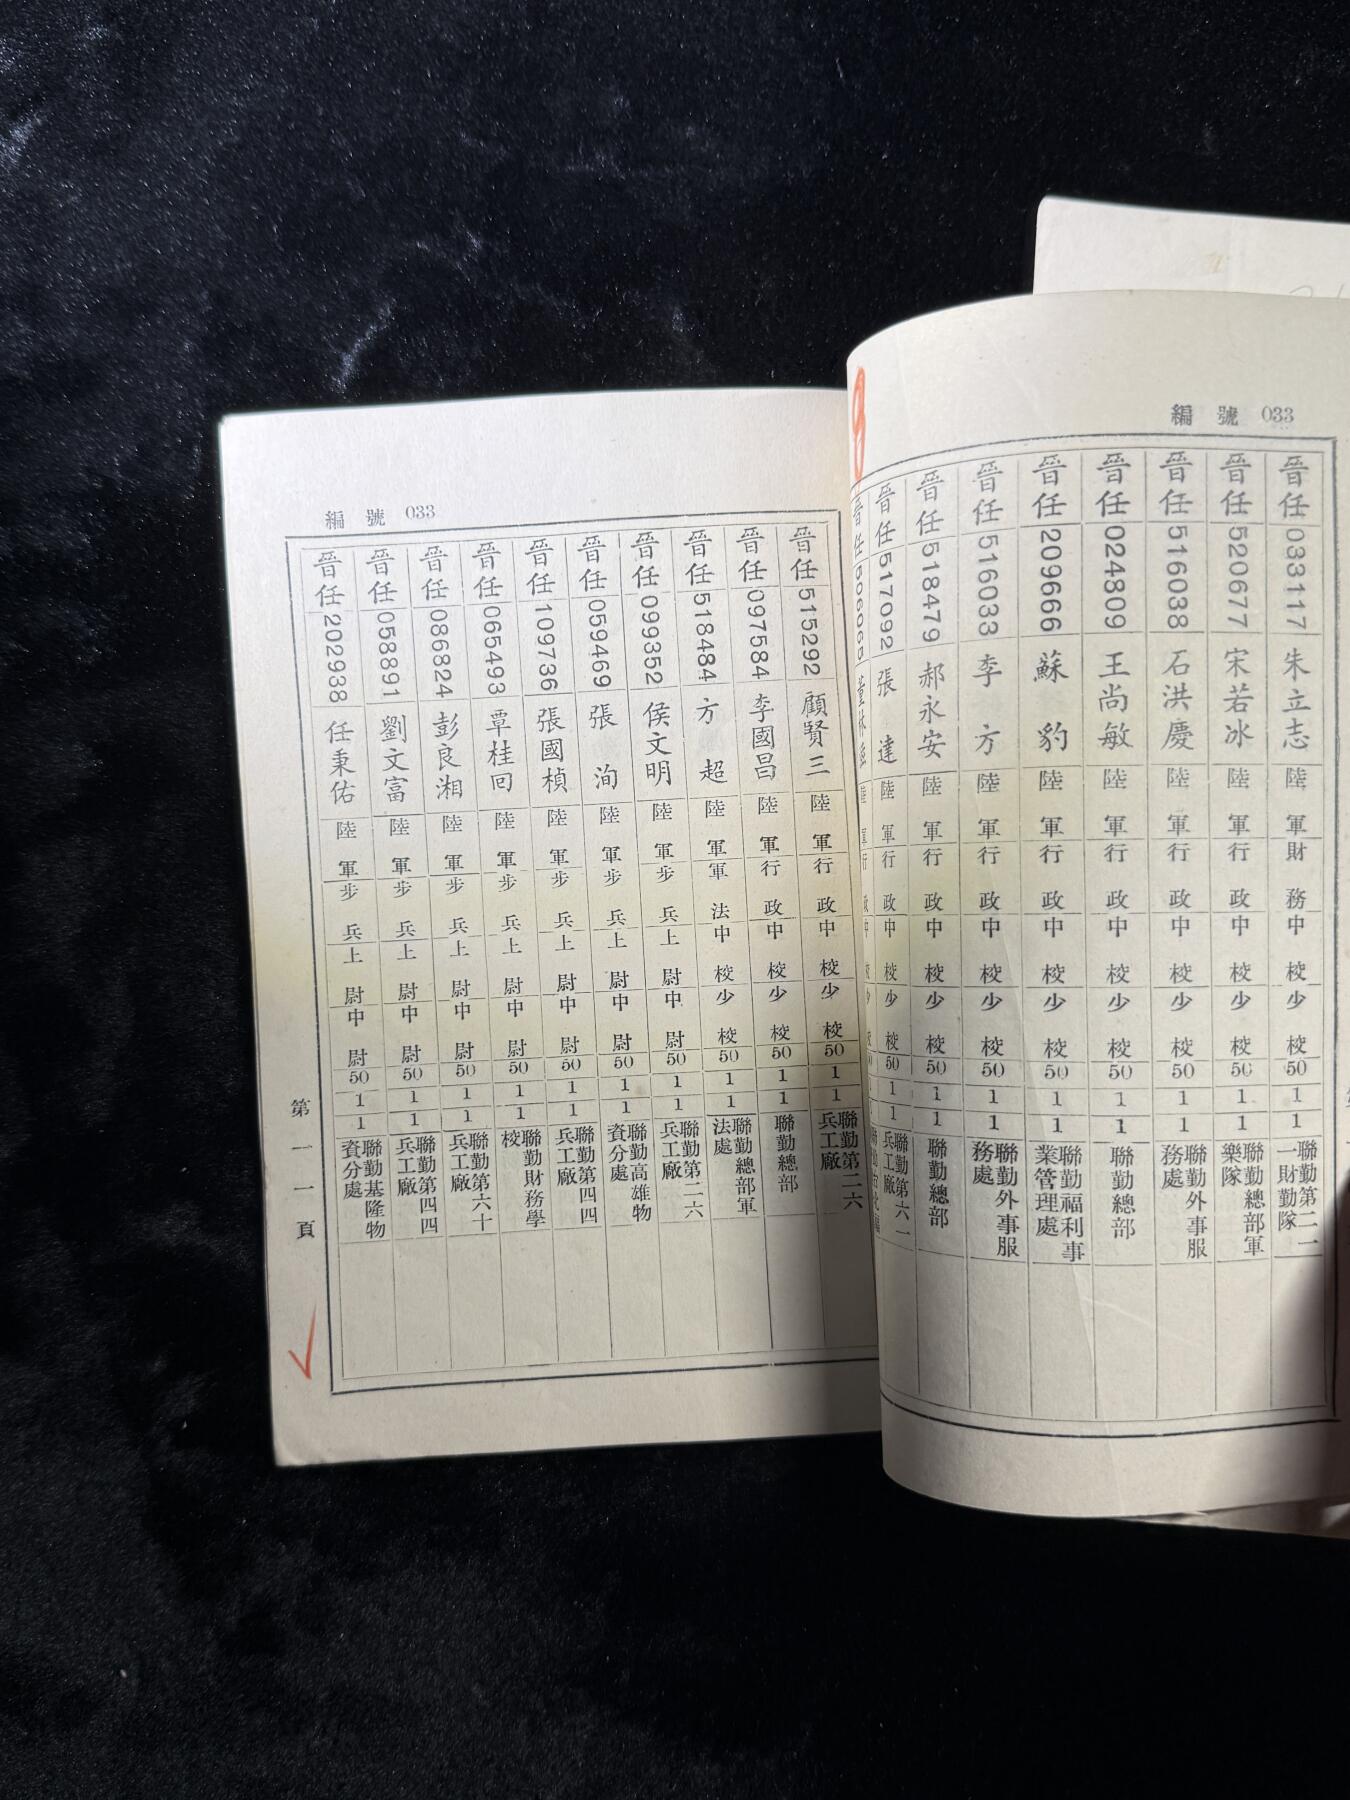 編號 033
晉任 033117 朱立志 陸軍 財務 中校 少校 50 1 1 聯勤第二一一財勤隊
晉任 520677 宋若冰 陸軍 行政 中校 少校 50 1 1 聯勤總部軍樂隊
晉任 516038 石洪慶 陸軍 行政 中校 少校 50 1 1 聯勤外事服務處
晉任 024809 王尚敏 陸軍 行政 中校 少校 50 1 1 聯勤總部
晉任 209666 蘇豹 陸軍 行政 中校 少校 50 1 1 聯勤福利事業管理處
晉任 516033 李方 陸軍 行政 中校 少校 50 1 1 聯勤外事服務處
晉任 518479 郝永安 陸軍 行政 中校 少校 50 1 1 聯勤總部
晉任 517092 張達 陸軍 行政 中校 少校 50 1 1 聯勤第六一兵工廠
晉任 506065 董林 陸軍 行政 中校 少校
編號 033
晉任 515292 顧賢三 陸軍 行政 中校 少校 50 1 1 聯勤第二六兵工廠
晉任 097584 李國昌 陸軍 行政 中校 少校 50 1 1 聯勤總部
晉任 518484 方超 陸軍 軍法 中校 少校 50 1 1 聯勤總部軍法處
晉任 099352 侯文明 陸軍 步兵 上尉 中尉 50 1 1 聯勤第二六兵工廠
晉任 059469 張洵 陸軍 步兵 上尉 中尉 50 1 1 聯勤高雄物資分處
晉任 109736 張國楨 陸軍 步兵 上尉 中尉 50 1 1 聯勤第四四兵工廠
晉任 065493 覃桂回 陸軍 步兵 上尉 中尉 50 1 1 聯勤財務學校
晉任 086824 彭良湘 陸軍 步兵 上尉 中尉 50 1 1 聯勤第六十兵工廠
晉任 058891 劉文富 陸軍 步兵 上尉 中尉 50 1 1 聯勤第四四兵工廠
晉任 202938 任秉佑 陸軍 步兵 上尉 中尉 50 1 1 聯勤基隆物資分處
第一一頁